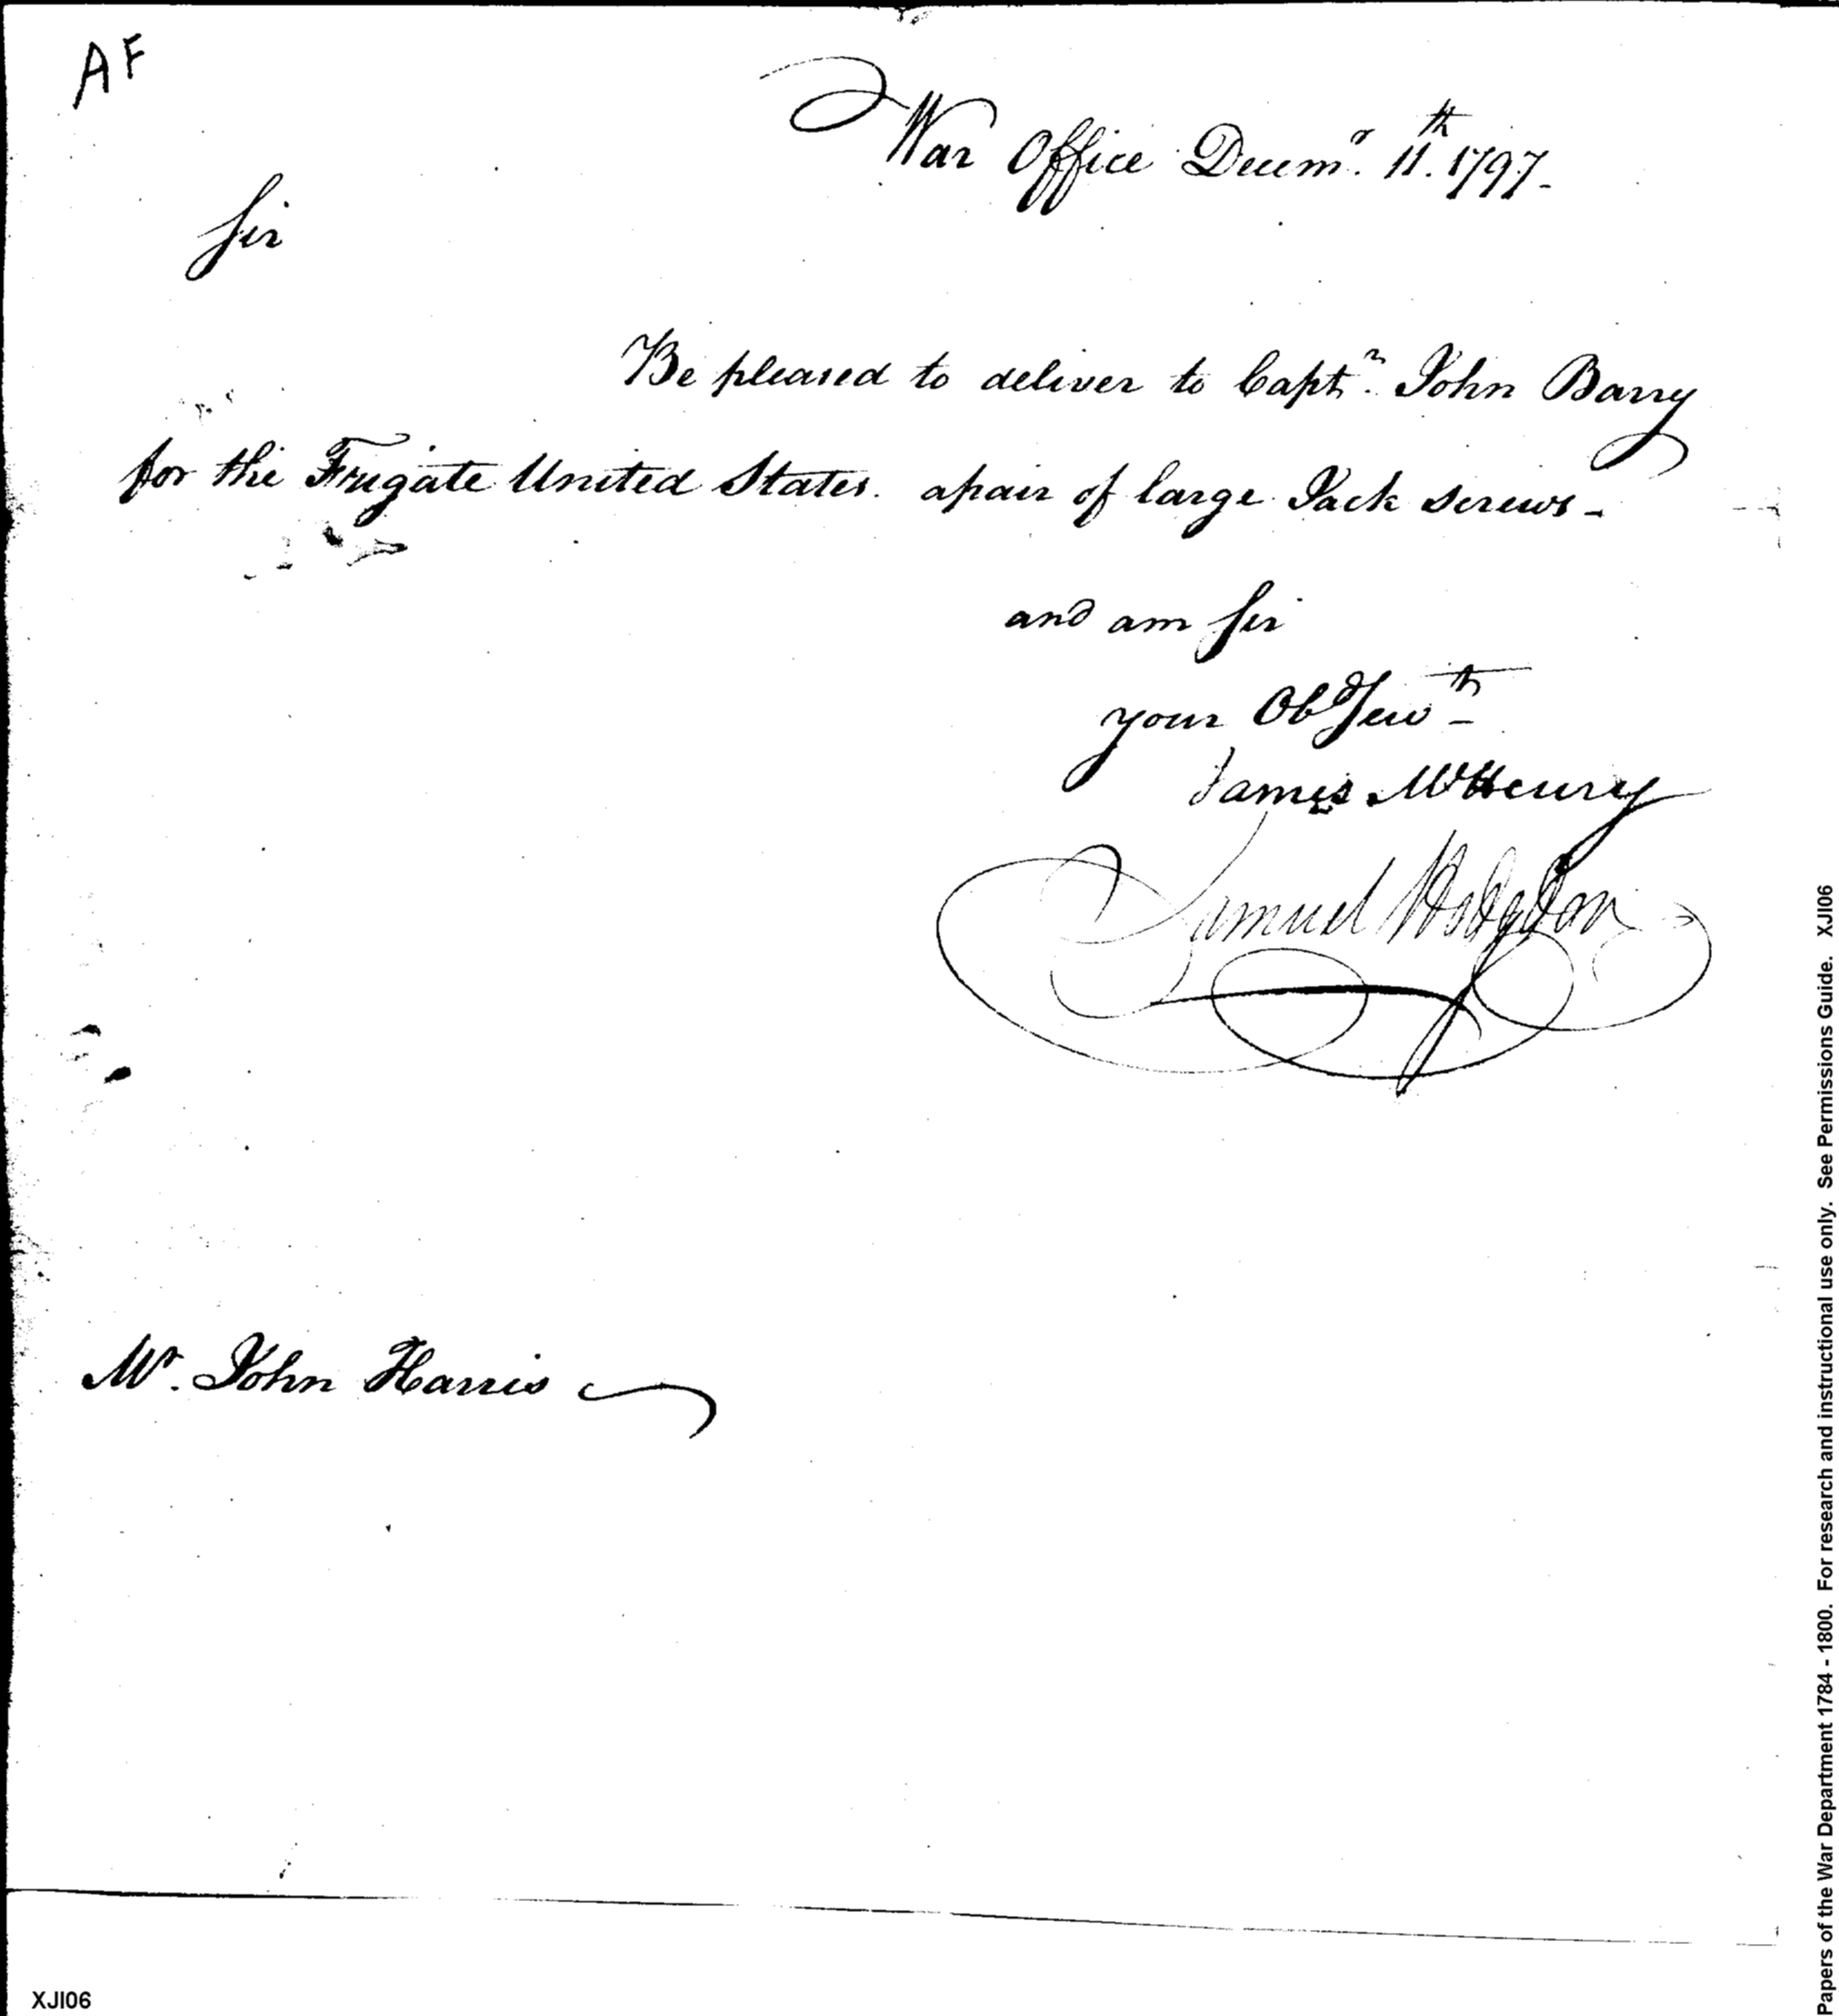 AF
War Office Decemr. 11th. 1797-
Sir
Be pleased to deliver to Captn. John Barry
for the Frigate United States. apair of large Jack screws-
and am Sir
your Obd Servt
James McHenry
Samuel Hodgdon
Mr. John Harris
XJI06
Papers of the War Department 1784 - 1800. For research and instructional use only. See Permissions Guide. XJI06